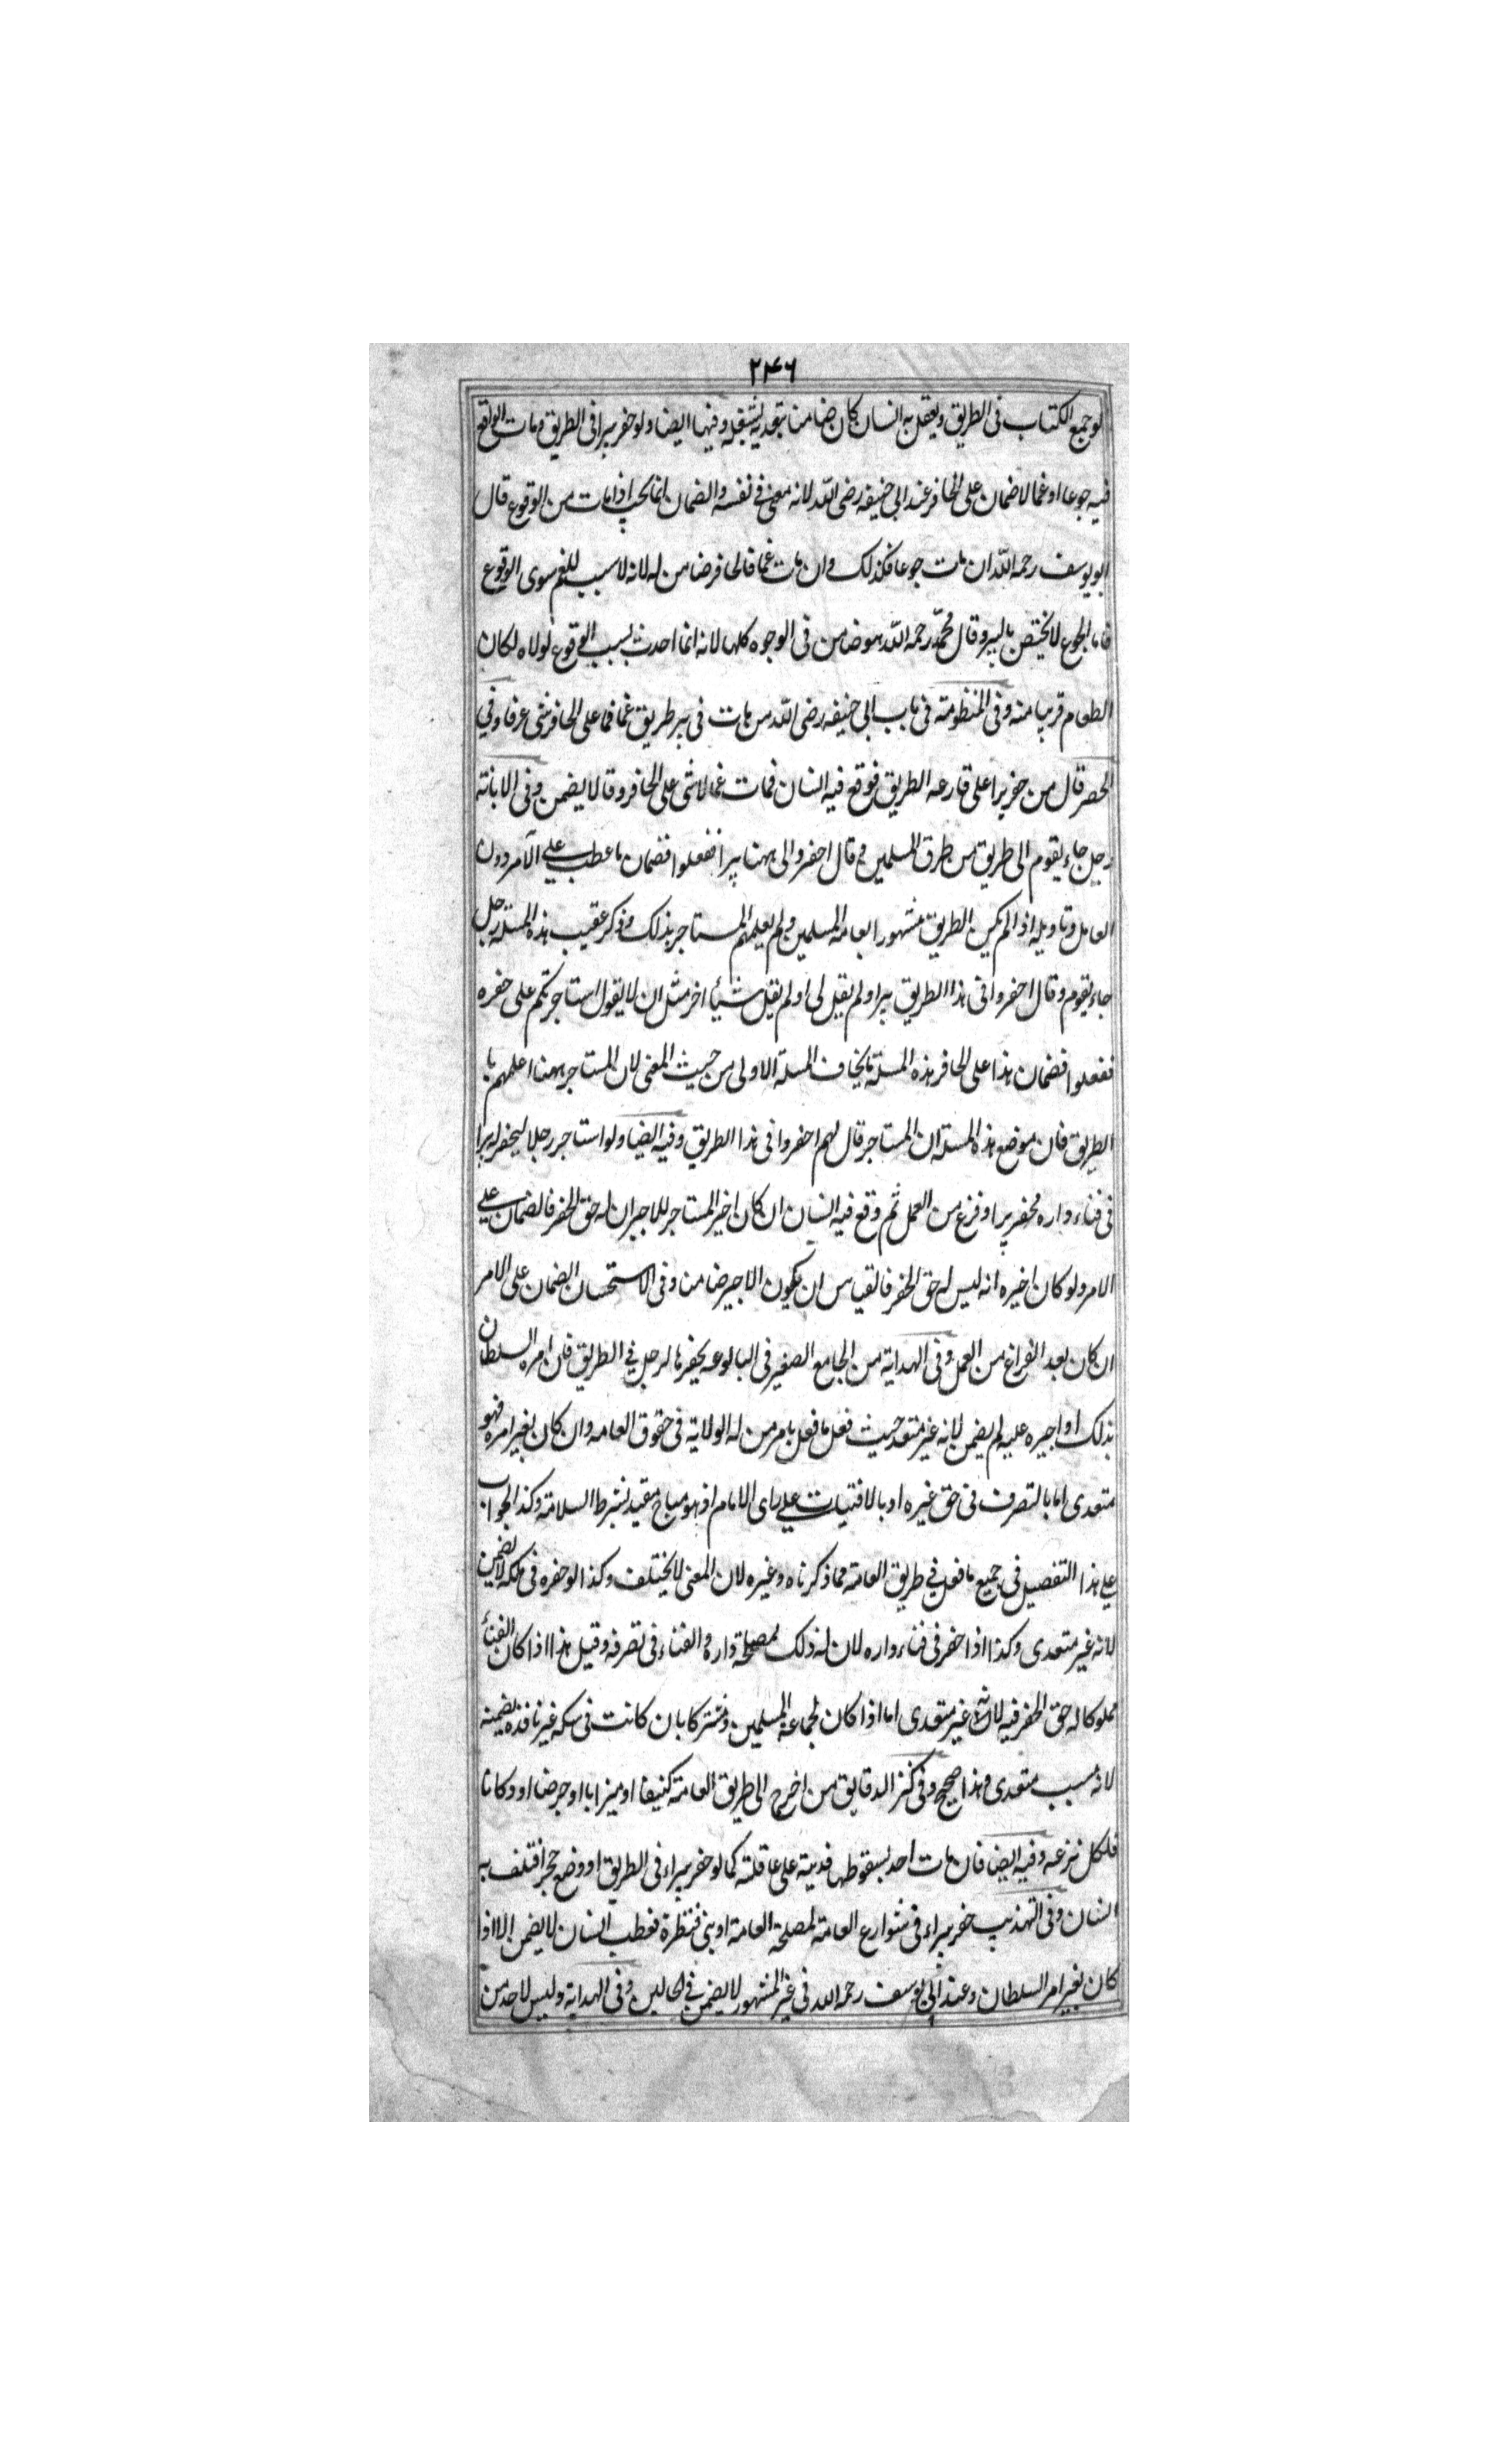 ۲۴۶
لو جمع الكتاب فى الطريق ويعقل به انسان كان ضامنا بتعديه بشغله وفيها ايضا ولو حفر بيرا فى الطريق ومات الواقع
فيه جوعا او غما لا ضمان على الحافر عند ابى حنيفه رضى الله لانه معنى فى نفسه والضمان انما يجب اذا مات من الوقوع قال
ابو يوسف رحمه الله ان مات جوعا فكذلك وان مات غما فالحافر ضامن له لانه لا سبب للغم سوى الوقوع
فاما الجوع لا يختص بالبير وقال محمد رحمه الله هو ضامن فى الوجوه كلها لانه انما احدث بسبب الوقوع لولاه لكان
الطعام قريبا منه وفى المنظومة فى باب ابى حنيفه رضى الله من مات فى بير طريق غما فما على الحافر شى عرفا وفى
الحصر قال من حفر بيرا على قارعه الطريق فوقع فيه انسان فمات غما لا شى على الحافر وقالا يضمن وفى الابانة
رجل جاء بقوم الى طريق من طرق المسلمين وقال احفروا لى ههنا بيرا ففعلوا فضمان ما عطب على الآمر دون
العامل وتاويله اذا لم يكن الطريق مشهورا لعامة المسلمين ولم يعلمهم المستاجر بذلك وذكر عقيب هذه المسئلة رجل
جاء بقوم وقال احفروا فى هذا الطريق بيرا ولم يقل لى او لم يقل شيئا اخر مثل ان لا يقول استاجرتكم على حفره
ففعلوا فضمان هذا على الحافر هذه المسئلة يخالف المسلة الاولى من حيث المعنى لان المستاجر ههنا اعلمهم با
الطريق فان موضع هذه المسئله ان المستاجر قال لهم احفروا فى هذا الطريق وفيه ايضا ولو استاجر رجلا ليحفر له بيرا
فى فناء داره فحفر بيرا وفرغ من العمل ثم وقع فيه انسان ان كان اخبر المستاجر للاجير ان له حق الحفر فالضمان على
الامر ولو كان اخبره انه ليس له حق الحفر فالقياس ان يكون الاجير ضامنا وفى الاستحسان الضمان على الامر
ان كان بعد الفراغ من العمل وفى الهداية من الجامع الصغير فى البالوعه يحفرها الرجل فى الطريق فان امره السلطان
بذلك او اجبره عليه لم يضمن لانه غير متعد حيث فعل ما فعل بامر من له الولاية فى حقوق العامه وان كان بغير امره فهو
متعدى اما بالتصرف فى حق غيره او بالافتيات على راى الامام اذ هو مباح مقيد بشرط السلامة وكذا الجواب
على هذا التفصيل فى جميع ما فعل فى طريق العامة مما ذكرناه وغيره لان المعنى لا يختلف وكذا لو حفره فى ملكه لا يضمن
لانه غير متعدى وكذا اذا حفر فى فناء داره لان له ذلك لمصلحة داره والفناء فى تصرفه وقيل هذا اذا كان الفناء
مملوكا له حق الحفر فيه لانه غير متعدى اما اذا كان لجماعة المسلمين ومشتركا بان كانت فى سكه غير نافذه يضمنه
لانه مسبب متعدى وهذا صحيح وفى كنز الدقايق من اخرج الى طريق العامة كنيفا او ميزابا او جرصنا او دكانا
فلكل نزعه وفيه ايضا فان مات احد بسقوطها فديته على عاقلته كما لو حفر بيراء فى الطريق او وضع حجرا فتلف به
انسان وفى التهذيب حفر بيراء فى شوارع العامة لمصلحة العامة او بنى قنطرة فعطب انسان لا يضمن الا اذا
كان بغير امر السلطان وعند ابى يوسف رحمه الله فى غير المشهور لا يضمن فى الحالين وفى الهداية وليس لاحد من